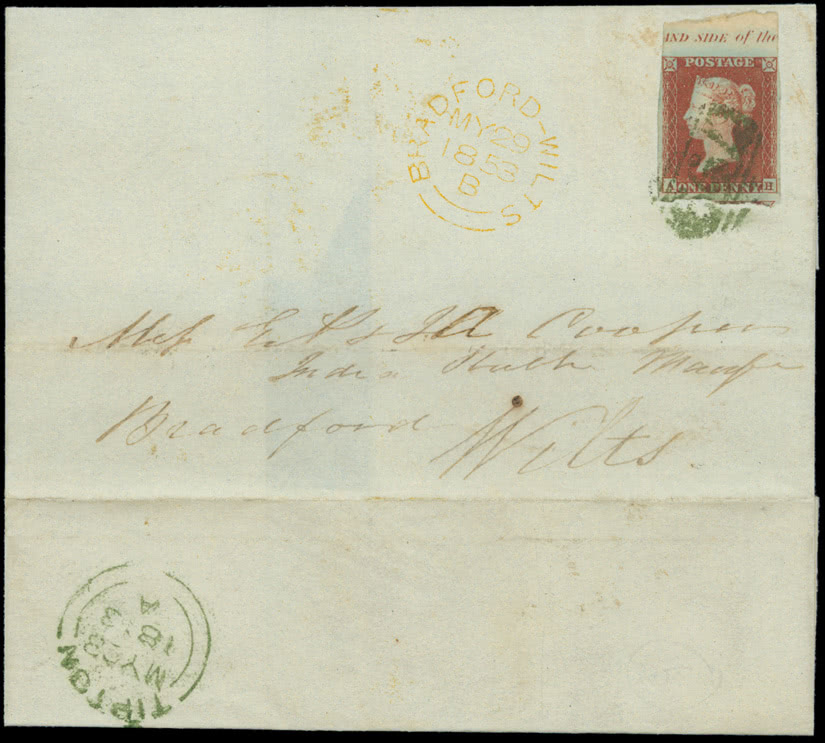 IND SIDE of the
POSTAGE
A ONE PENNY H
BRADFORD-WILTS
MY 29
1853
B
Mess E & I A Coopers
India Rubber Manufr
Bradford
Wilts.
TIPTON
MY 28
18 3
A